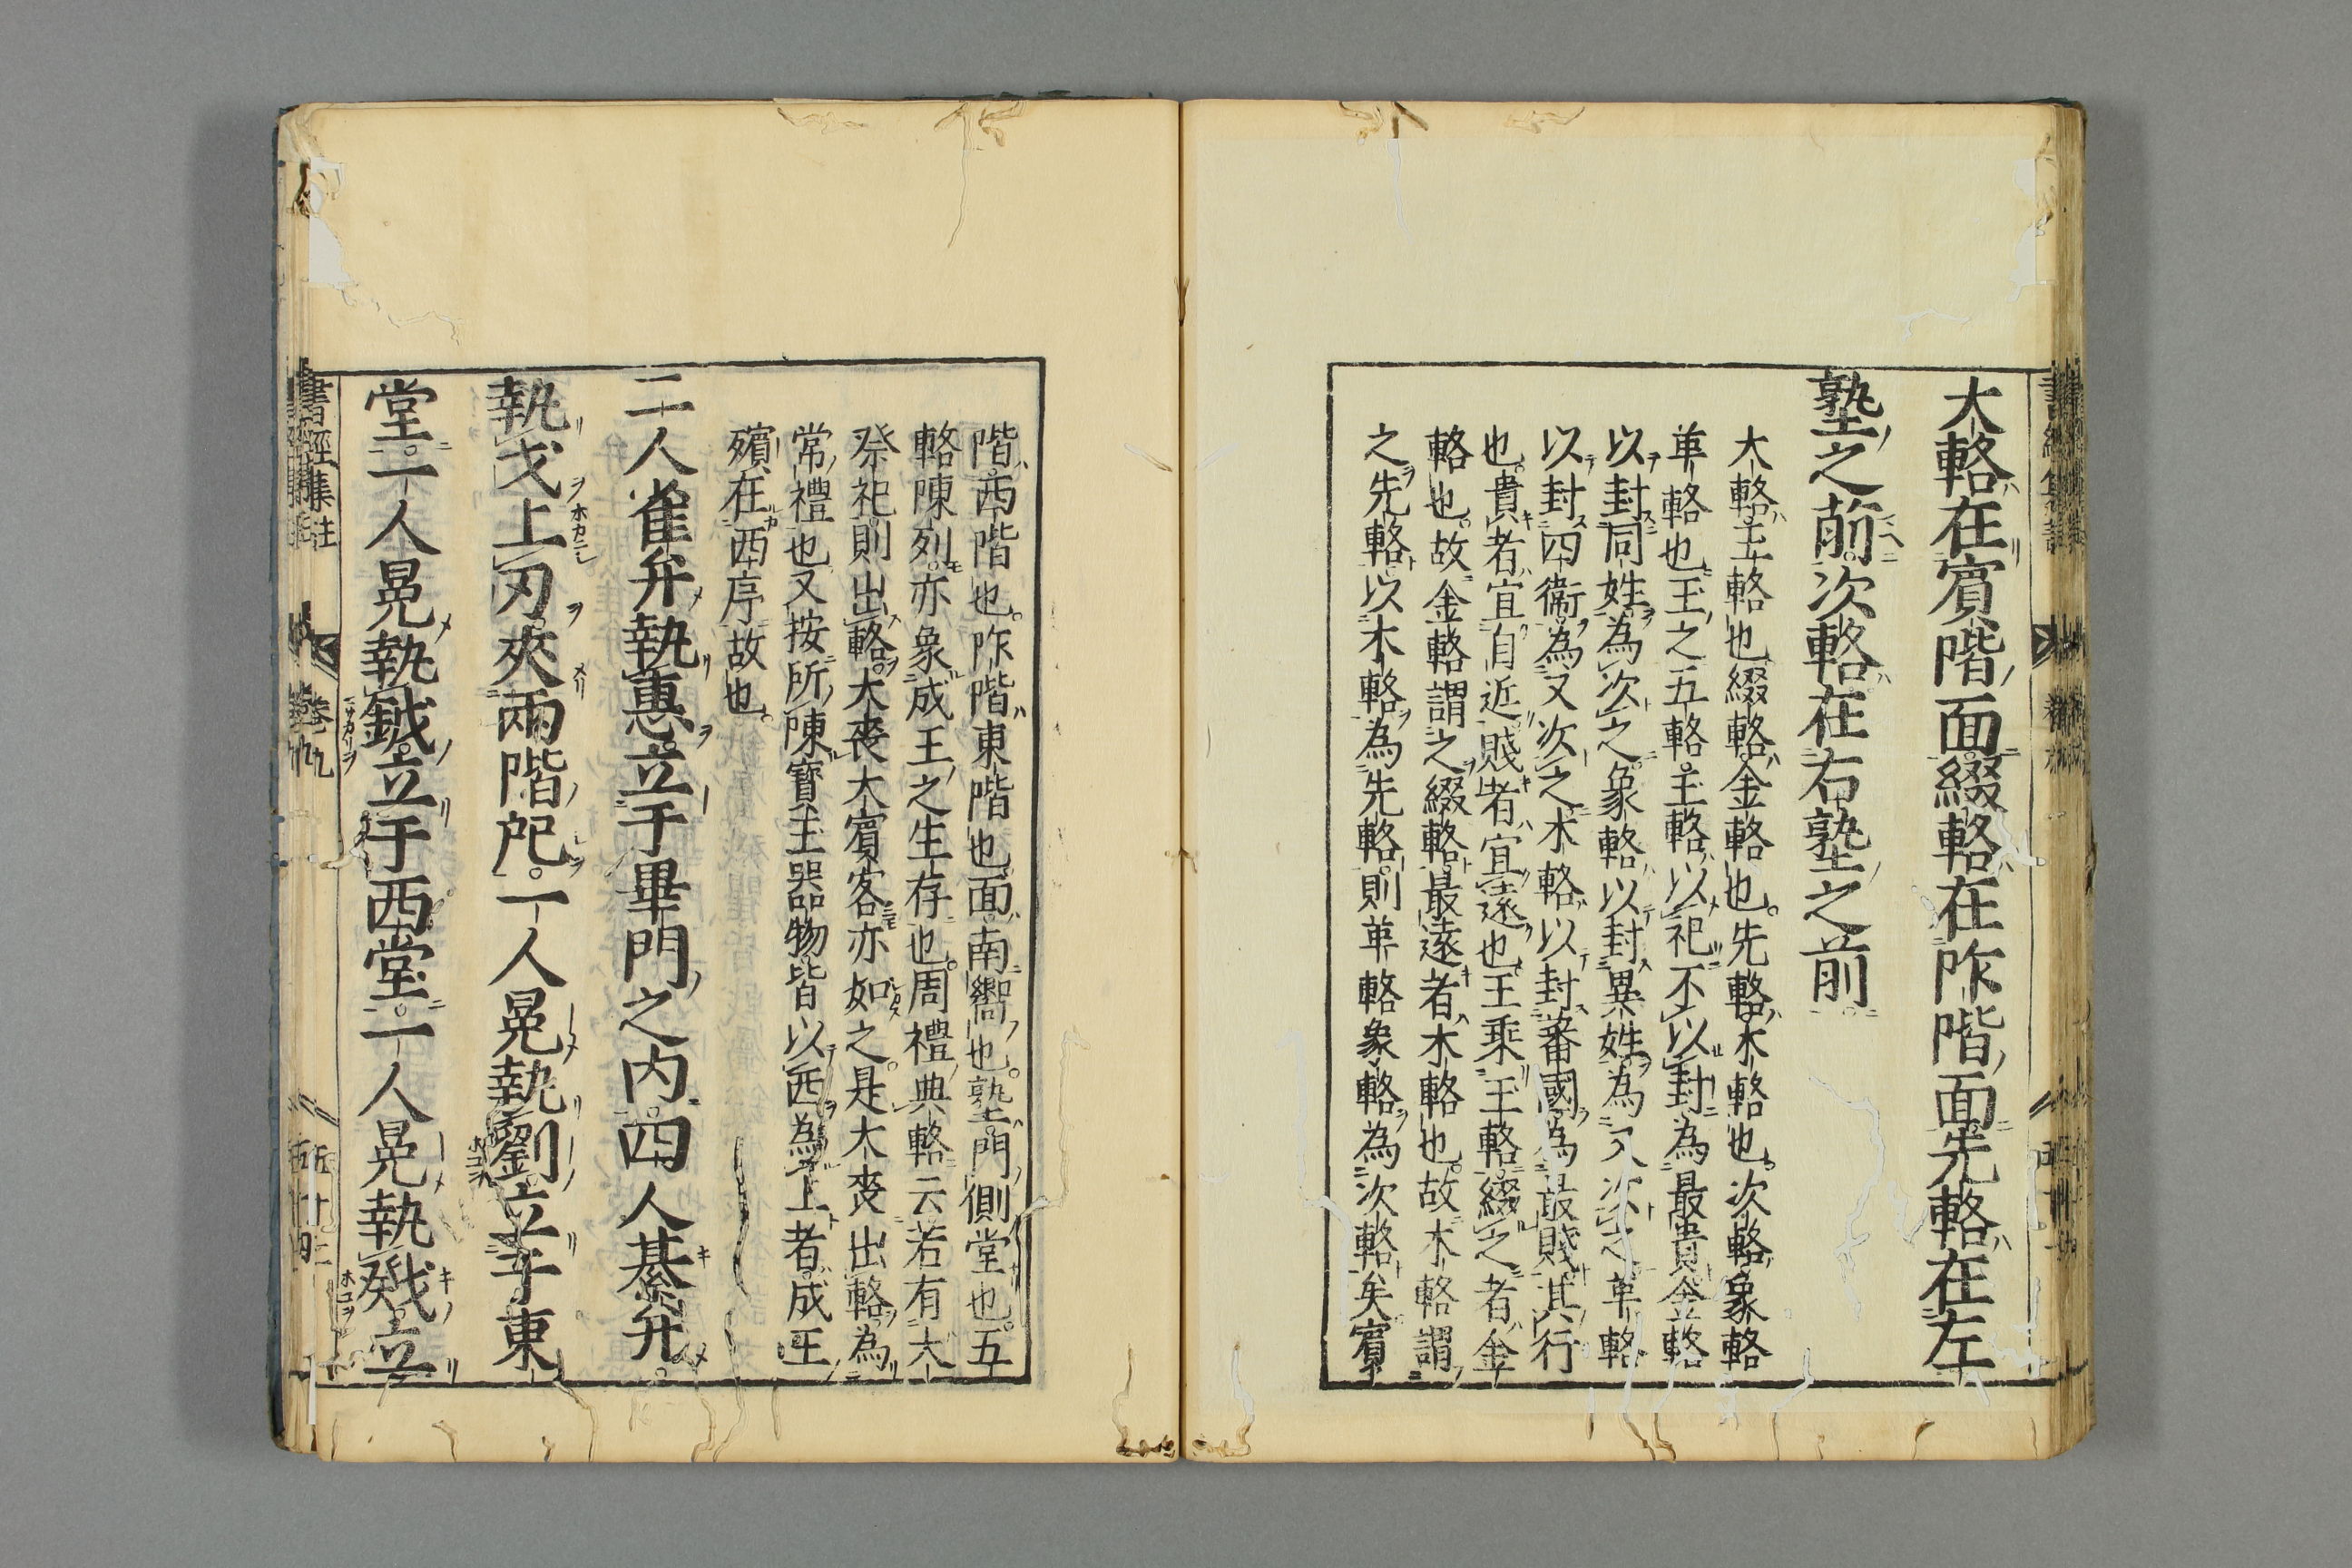 大輅在賓階面綴輅在阼階面先輅在左
塾之前次輅在右塾之前
大輅玉輅也綴輅金輅也先輅木輅也次輅象輅
革輅也王之五輅玉輅以祀不以封為最貴金輅
以封同姓為次之象輅以封異姓為又次之革輅
以封四衞為又次之木輅以封蕃國為最賤其行
也貴者宜自近賤者宜遠也王乘玉輅綴之者金
輅也故金輅謂之綴輅最遠者木輅也故木輅謂
之先輅以木輅為先輅則革輅象輅為次輅矣賓
階西階也阼階東階也面南嚮也塾門側堂也五
輅陳列亦象成王之生存也周禮典輅云若有大
祭祀則出輅大喪大賓客亦如之是大喪出輅為
常禮也又按所陳寶玉器物皆以西為上者成王
殯在西序故也
二人雀弁執惠立于畢門之内四人綦弁
執戈上刃夾兩階戺一人冕執劉立于東
堂一人冕執鉞立于西堂一人冕執戣立
書經集註
卷九
五十二